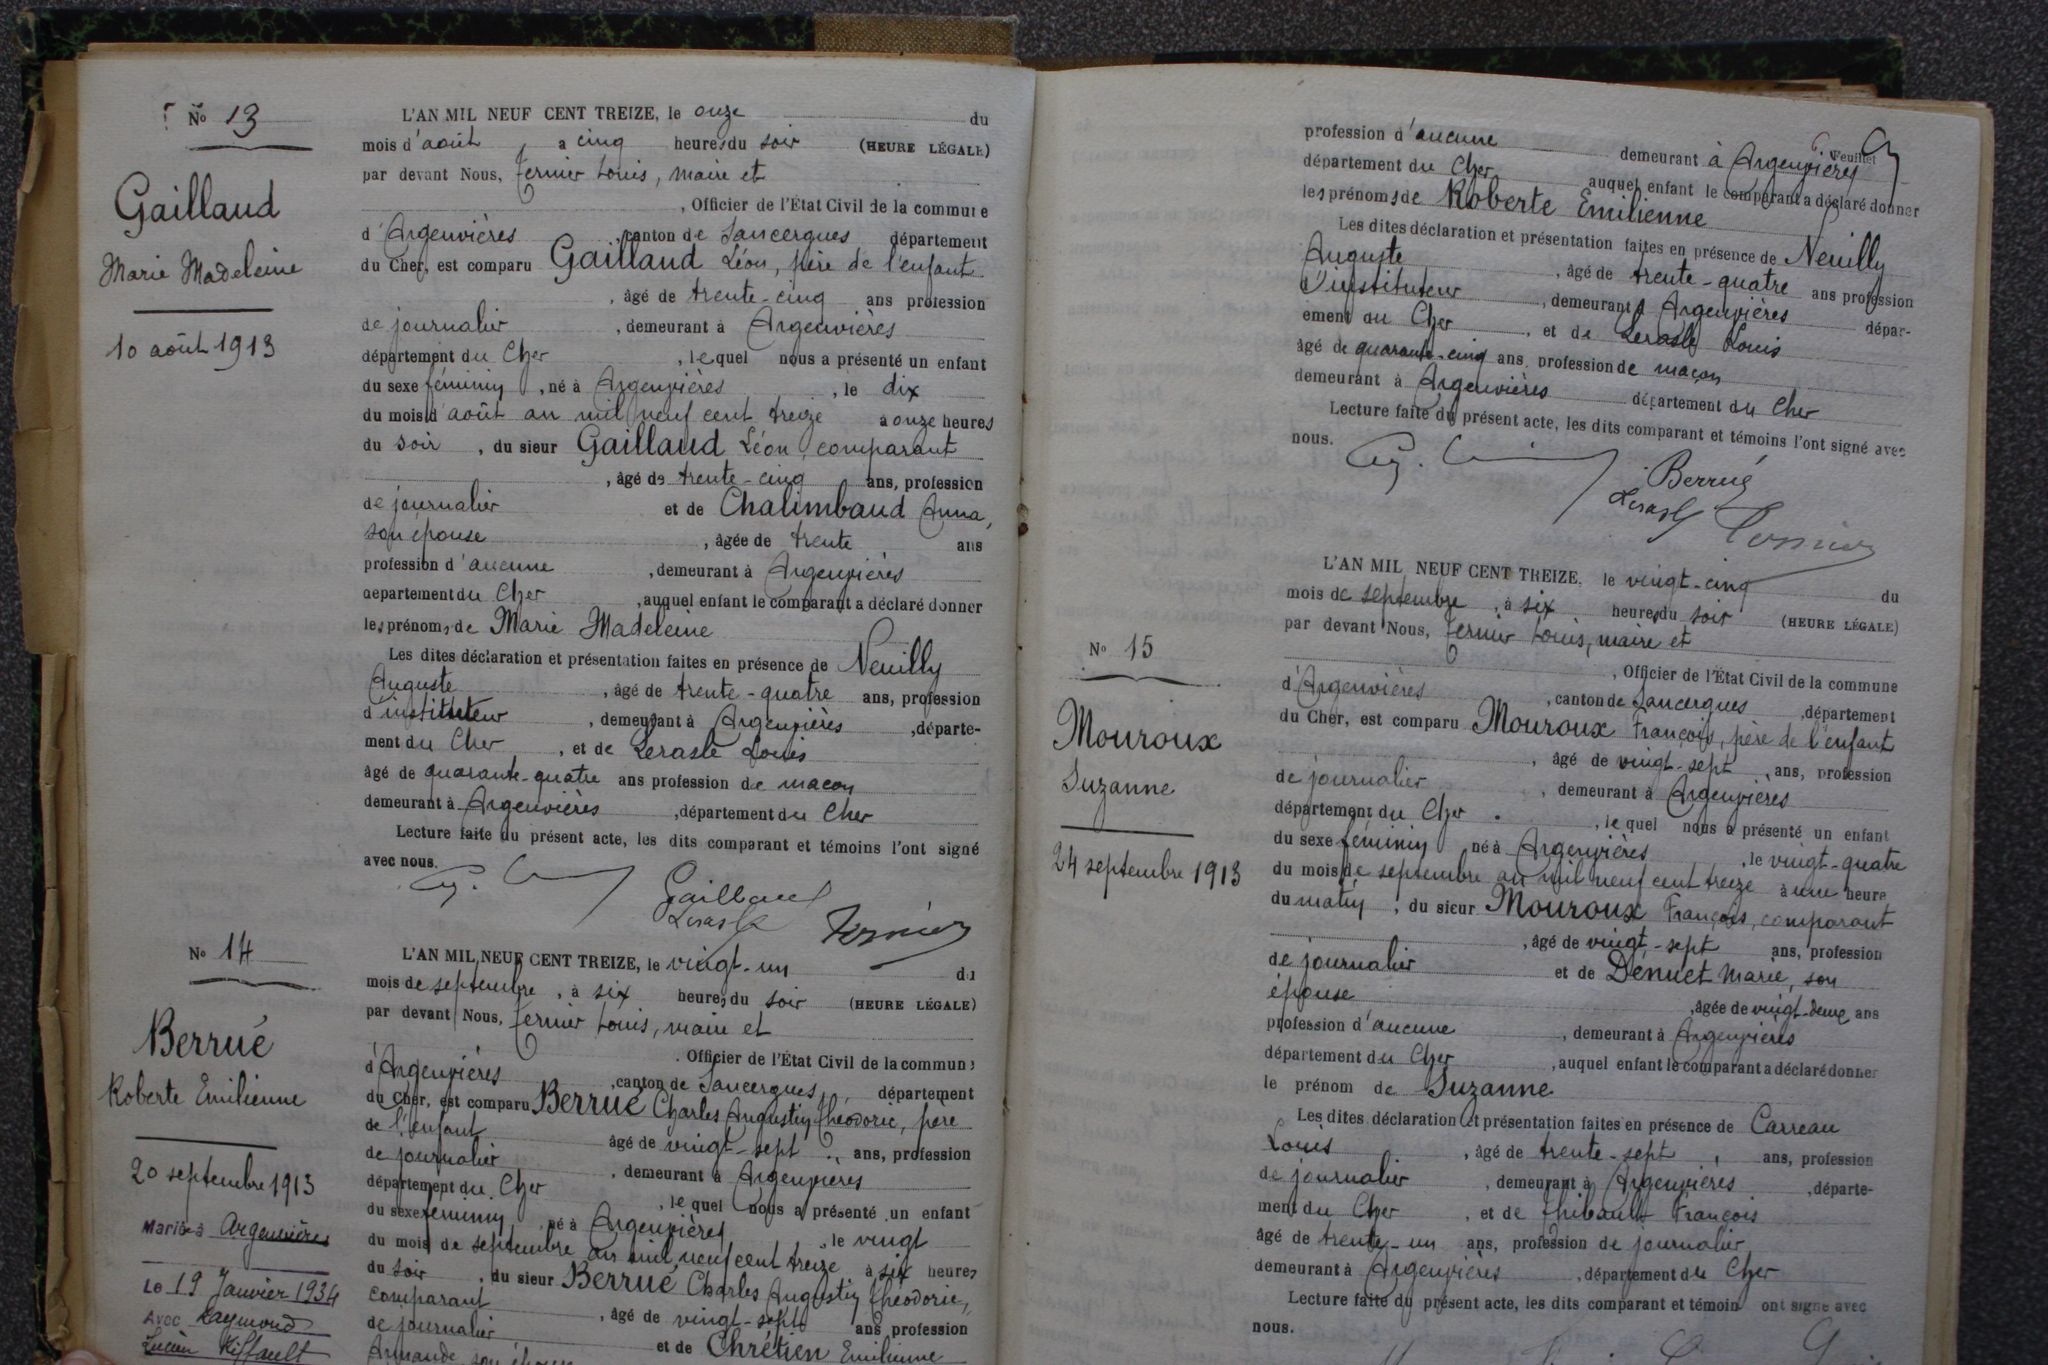 No 13
Gaillaud
Marie Madeleine
10 août 1913
L'AN MIL NEUF CENT TREIZE, le onze du
mois d'août, à cinq heures du soir (HEURE LÉGALE)
par devant Nous, Fernier Louis, maire et
, Officier de l'État Civil de la commune
d'Argenvières, canton de Sancergues, département
du Cher, est comparu Gaillaud Léon, père de l'enfant
, âgé de trente-cinq ans profession
de journalier, demeurant à Argenvières
département du Cher, lequel nous a présenté un enfant
du sexe féminin, né à Argenvières, le dix
du mois d'août an mil neuf cent treize à onze heures
du soir, du sieur Gaillaud Léon, comparant
, âgé de trente-cinq ans, profession
de journalier et de Chalimbaud Anna,
son épouse, âgée de trente ans
profession d'aucune, demeurant à Argenvières
département du Cher, auquel enfant le comparant a déclaré donner
les prénoms de Marie Madeleine
Les dites déclaration et présentation faites en présence de Neuilly
Auguste, âgé de trente-quatre ans, profession
d'instituteur, demeurant à Argenvières, départe-
ment du Cher, et de Lerasle Louis
âgé de quarante-quatre ans profession de maçon
demeurant à Argenvières, département du Cher
Lecture faite du présent acte, les dits comparant et témoins l'ont signé
avec nous.
Gaillaud
Lerasle
Fernier
No 14
Berrué
Roberte Emilienne
20 septembre 1913
Mariée à Argenvières
Le 19 Janvier 1934
Avec Raymond
Lucien Riffault
L'AN MIL NEUF CENT TREIZE, le vingt-un du
mois de septembre, à six heures du soir (HEURE LÉGALE)
par devant Nous, Fernier Louis, maire et
. Officier de l'État Civil de la commune
d'Argenvières, canton de Sancergues, département
du Cher, est comparu Berrué Charles Augustin Théodorie, père
de l'enfant âgé de vingt-sept ans, profession
de journalier, demeurant à Argenvières
département du Cher, lequel nous a présenté un enfant
du sexe féminin, né à Argenvières, le vingt
du mois de septembre an mil neuf cent treize à six heures
du soir, du sieur Berrué Charles Augustin Théodorie,
comparant, âgé de vingt-sept ans profession
de journalier et de Chrétien Emilienne
Armande son épouse
Feuillet
profession d'aucune demeurant à Argenvières
département du Cher auquel enfant le comparant a déclaré donner
les prénoms de Roberte Emilienne
Les dites déclaration et présentation faites en présence de Neuilly
Auguste, âgé de trente-quatre ans profession
d'instituteur, demeurant à Argenvières dépar-
ement du Cher, et de Lerasle Louis
âgé de quarante-cinq ans profession de maçon
demeurant à Argenvières département du Cher
Lecture faite du présent acte, les dits comparant et témoins l'ont signé avec
nous.
Berrué
Lerasle
Fernier
No 15
Mouroux
Suzanne
24 septembre 1913
L'AN MIL NEUF CENT TREIZE, le vingt-cinq du
mois de septembre, à six heures du soir (HEURE LÉGALE)
par devant Nous, Fernier Louis, maire et
, Officier de l'État Civil de la commune
d'Argenvières, canton de Sancergues, département
du Cher, est comparu Mouroux François, père de l'enfant
, âgé de vingt-sept, ans, profession
de journalier, demeurant à Argenvières
département du Cher, lequel nous a présenté un enfant
du sexe féminin né à Argenvières, le vingt-quatre
du mois de septembre an mil neuf cent treize à une heure
du matin, du sieur Mouroux François, comparant
, âgé de vingt-sept ans, profession
de journalier et de Dénuet Marie, son
épouse, âgée de vingt-deux ans
profession d'aucune, demeurant à Argenvières
département du Cher, auquel enfant le comparant a déclaré donner
le prénom de Suzanne
Les dites déclaration et présentation faites en présence de Carreau
Louis, âgé de trente-sept, ans, profession
de journalier, demeurant à Argenvières, départe-
ment du Cher, et de Thibault François
âgé de trente-un ans, profession de journalier
demeurant à Argenvières, département du Cher
Lecture faite du présent acte, les dits comparant et témoin ont signé avec
nous.